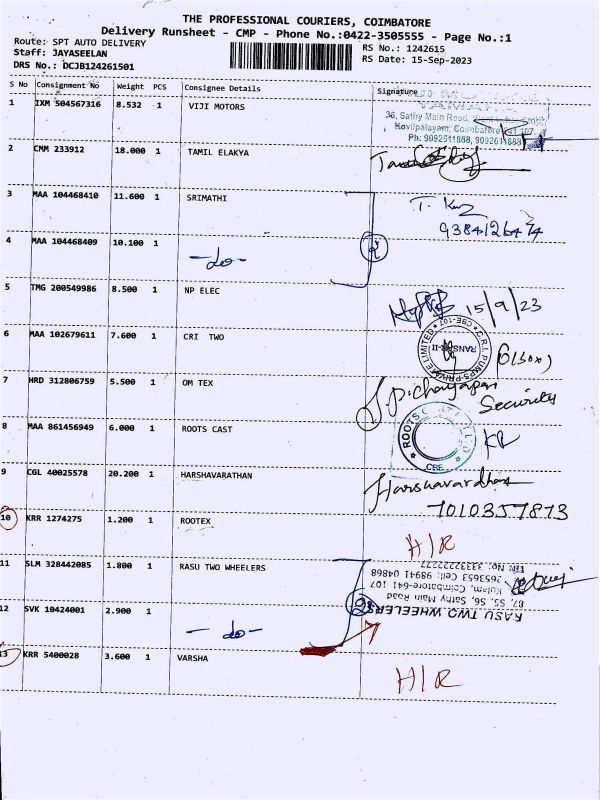 THE PROFESSIONAL COURIERS, COIMBATORE
Delivery Runsheet - CMP - Phone No.:0422-3505555 - Page No.:1
Route: SPT AUTO DELIVERY
RS No.: 1242615
Staff: JAYASEELAN
RS Date: 15-Sep-2023
DRS No.: DCJB124261501
S No Consignment No Weight PCS Consignee Details Signature
1 IXM 504567316 8.532 1 VIJI MOTORS
36, Sathy Main Road,
Kovilpalayam, Coimbatore-641 107.
Ph: 9092611888, 9092611888
2 CMM 233912 18.000 1 TAMIL ELAKYA
3 MAA 104468410 11.600 1 SRIMATHI
9384126474
4 MAA 104468409 10.100 1
-do- 2
5 TMG 200549986 8.500 1 NP ELEC
15/9/23
6 MAA 102679611 7.600 1 CRI TWO
C.R.I. PUMPS PRIVATE LIMITED CBE-107
7 HRD 312806759 5.500 1 OM TEX
Security
8 MAA 861456949 6.000 1 ROOTS CAST
ROOTS CBE
9 CGL 40025578 20.200 1 HARSHAVARATHAN
Harshavardhan
7010357873
10 KRR 1274275 1.200 1 ROOTEX
H/R
11 SLM 328442085 1.800 1 RASU TWO WHEELERS
RASU TWO WHEELERS
87, S5, S6, Sathy Main Road
Kulam, Coimbatore-641 107
2653653 Cell: 98941 04868
12 SVK 10424001 2.900 1
-do- 2
13 KRR 5400028 3.600 1 VARSHA
H/R